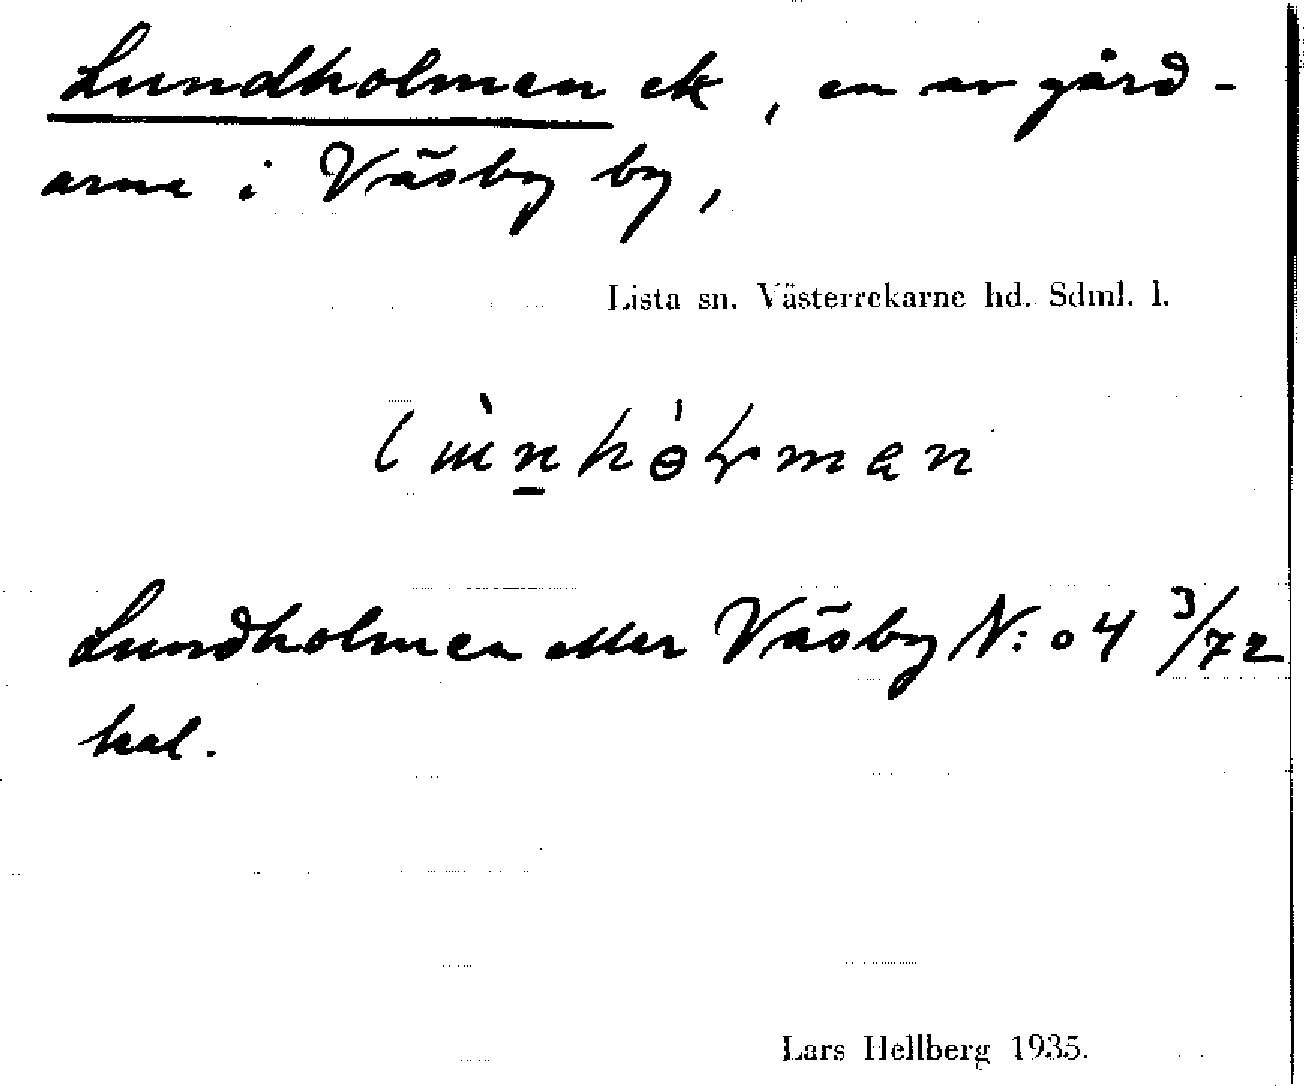 Lundholmen ek, en av gård-
arne i Väsby by,
Lista sn. Västerrekarne hd. Sdml. l.
Lundholmen eller Väsby N:o 4 3/72
kal.
Lars Hellberg 1935.